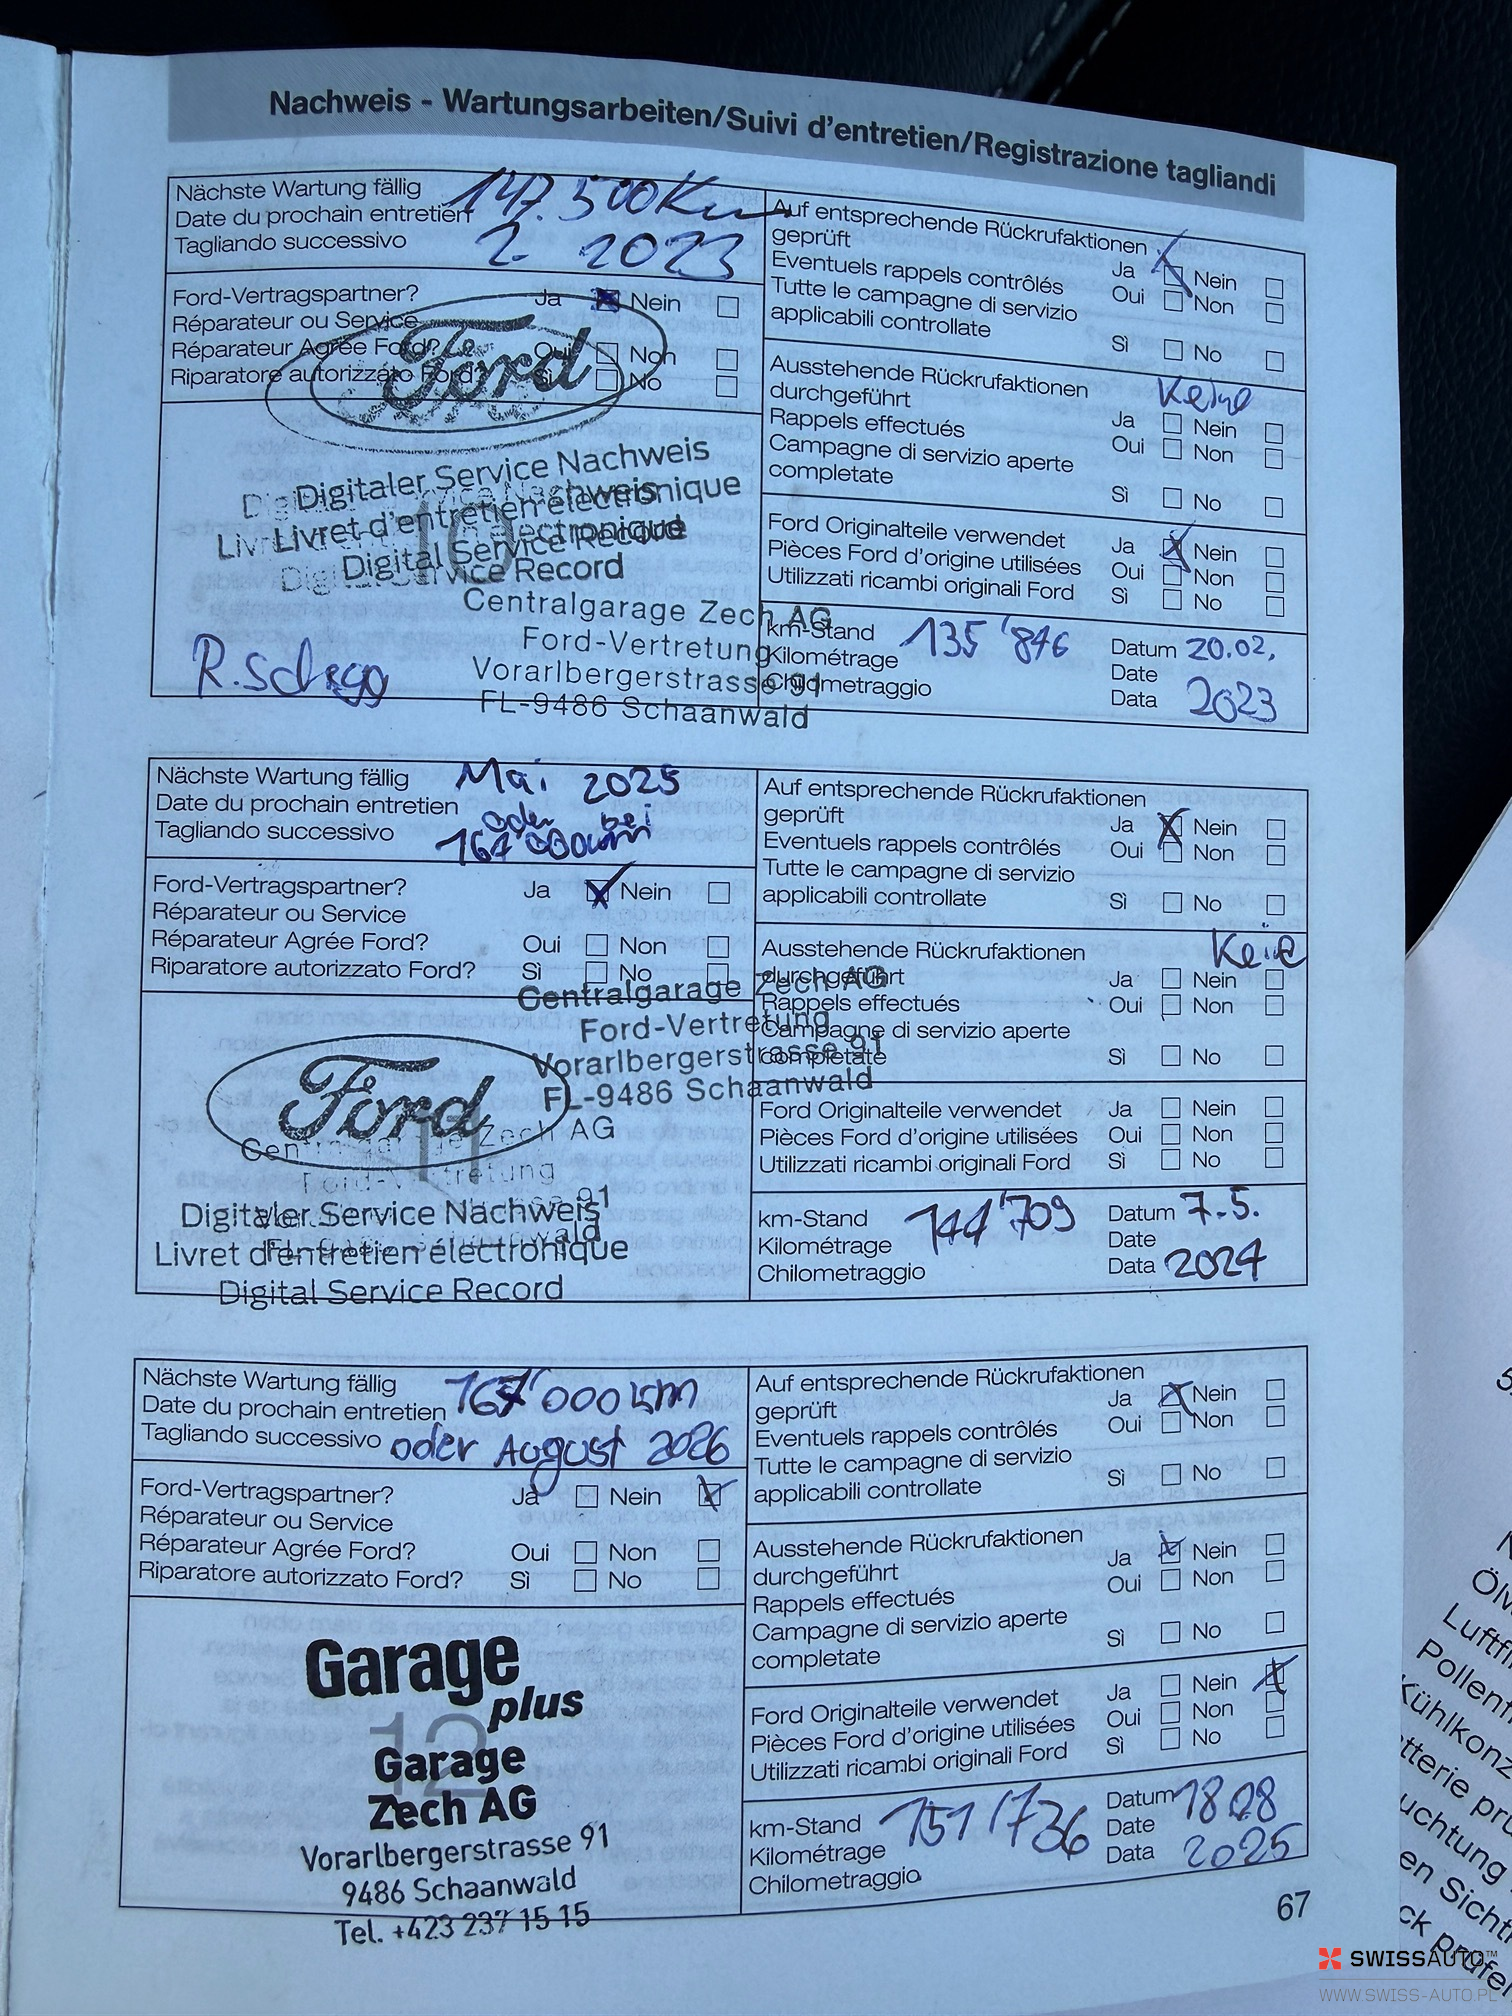 Nachweis - Wartungsarbeiten/Suivi d'entretien/Registrazione tagliandi
Nächste Wartung fällig 147.500 Km
Date du prochain entretien
Tagliando successivo 2. 2023
Ford-Vertragspartner? Ja Nein
Réparateur ou Service
Réparateur Agrée Ford? Oui Non
Riparatore autorizzato Ford? Sì No
Ford
Digitaler Service Nachweis
Livret d'entretien électronique
Digital Service Record
10
Centralgarage Zech AG
Ford-Vertretung
Vorarlbergerstrasse 91
FL-9486 Schaanwald
Auf entsprechende Rückrufaktionen
geprüft Ja Nein
Eventuels rappels contrôlés Oui Non
Tutte le campagne di servizio
applicabili controllate Sì No
Ausstehende Rückrufaktionen Keine
durchgeführt Ja Nein
Rappels effectués Oui Non
Campagne di servizio aperte
completate Sì No
Ford Originalteile verwendet Ja Nein
Pièces Ford d'origine utilisées Oui Non
Utilizzati ricambi originali Ford Sì No
km-Stand 135'846 Datum 20.02.
Kilométrage Date
Chilometraggio Data 2023
Nächste Wartung fällig Mai 2025
Date du prochain entretien oder bei
Tagliando successivo 167'000km
Ford-Vertragspartner? Ja Nein
Réparateur ou Service
Réparateur Agrée Ford? Oui Non
Riparatore autorizzato Ford? Sì No
Centralgarage Zech AG
Ford-Vertretung
Vorarlbergerstrasse 91
FL-9486 Schaanwald
Ford
11
Centralgarage Zech AG
Ford-Vertretung
Digitaler Service Nachweis
Livret d'entretien électronique
Digital Service Record
Auf entsprechende Rückrufaktionen
geprüft Ja Nein
Eventuels rappels contrôlés Oui Non
Tutte le campagne di servizio
applicabili controllate Sì No
Ausstehende Rückrufaktionen Keine
durchgeführt Ja Nein
Rappels effectués Oui Non
Campagne di servizio aperte
completate Sì No
Ford Originalteile verwendet Ja Nein
Pièces Ford d'origine utilisées Oui Non
Utilizzati ricambi originali Ford Sì No
km-Stand 144'709 Datum 7.5.
Kilométrage Date
Chilometraggio Data 2024
Nächste Wartung fällig 167'000 km
Date du prochain entretien
Tagliando successivo oder August 2026
Ford-Vertragspartner? Ja Nein
Réparateur ou Service
Réparateur Agrée Ford? Oui Non
Riparatore autorizzato Ford? Sì No
Garage
plus
12
Garage
Zech AG
Vorarlbergerstrasse 91
9486 Schaanwald
Tel. +423 237 15 15
Auf entsprechende Rückrufaktionen
geprüft Ja Nein
Eventuels rappels contrôlés Oui Non
Tutte le campagne di servizio
applicabili controllate Sì No
Ausstehende Rückrufaktionen
durchgeführt Ja Nein
Rappels effectués Oui Non
Campagne di servizio aperte
completate Sì No
Ford Originalteile verwendet Ja Nein
Pièces Ford d'origine utilisées Oui Non
Utilizzati ricambi originali Ford Sì No
km-Stand 151'736 Datum 18.08
Kilométrage Date
Chilometraggio Data 2025
67
SWISSAUTO™
WWW.SWISS-AUTO.PL